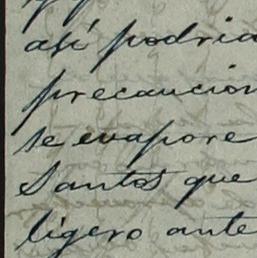 así podria
precaucion
se evapore
Santos que
ligero ante